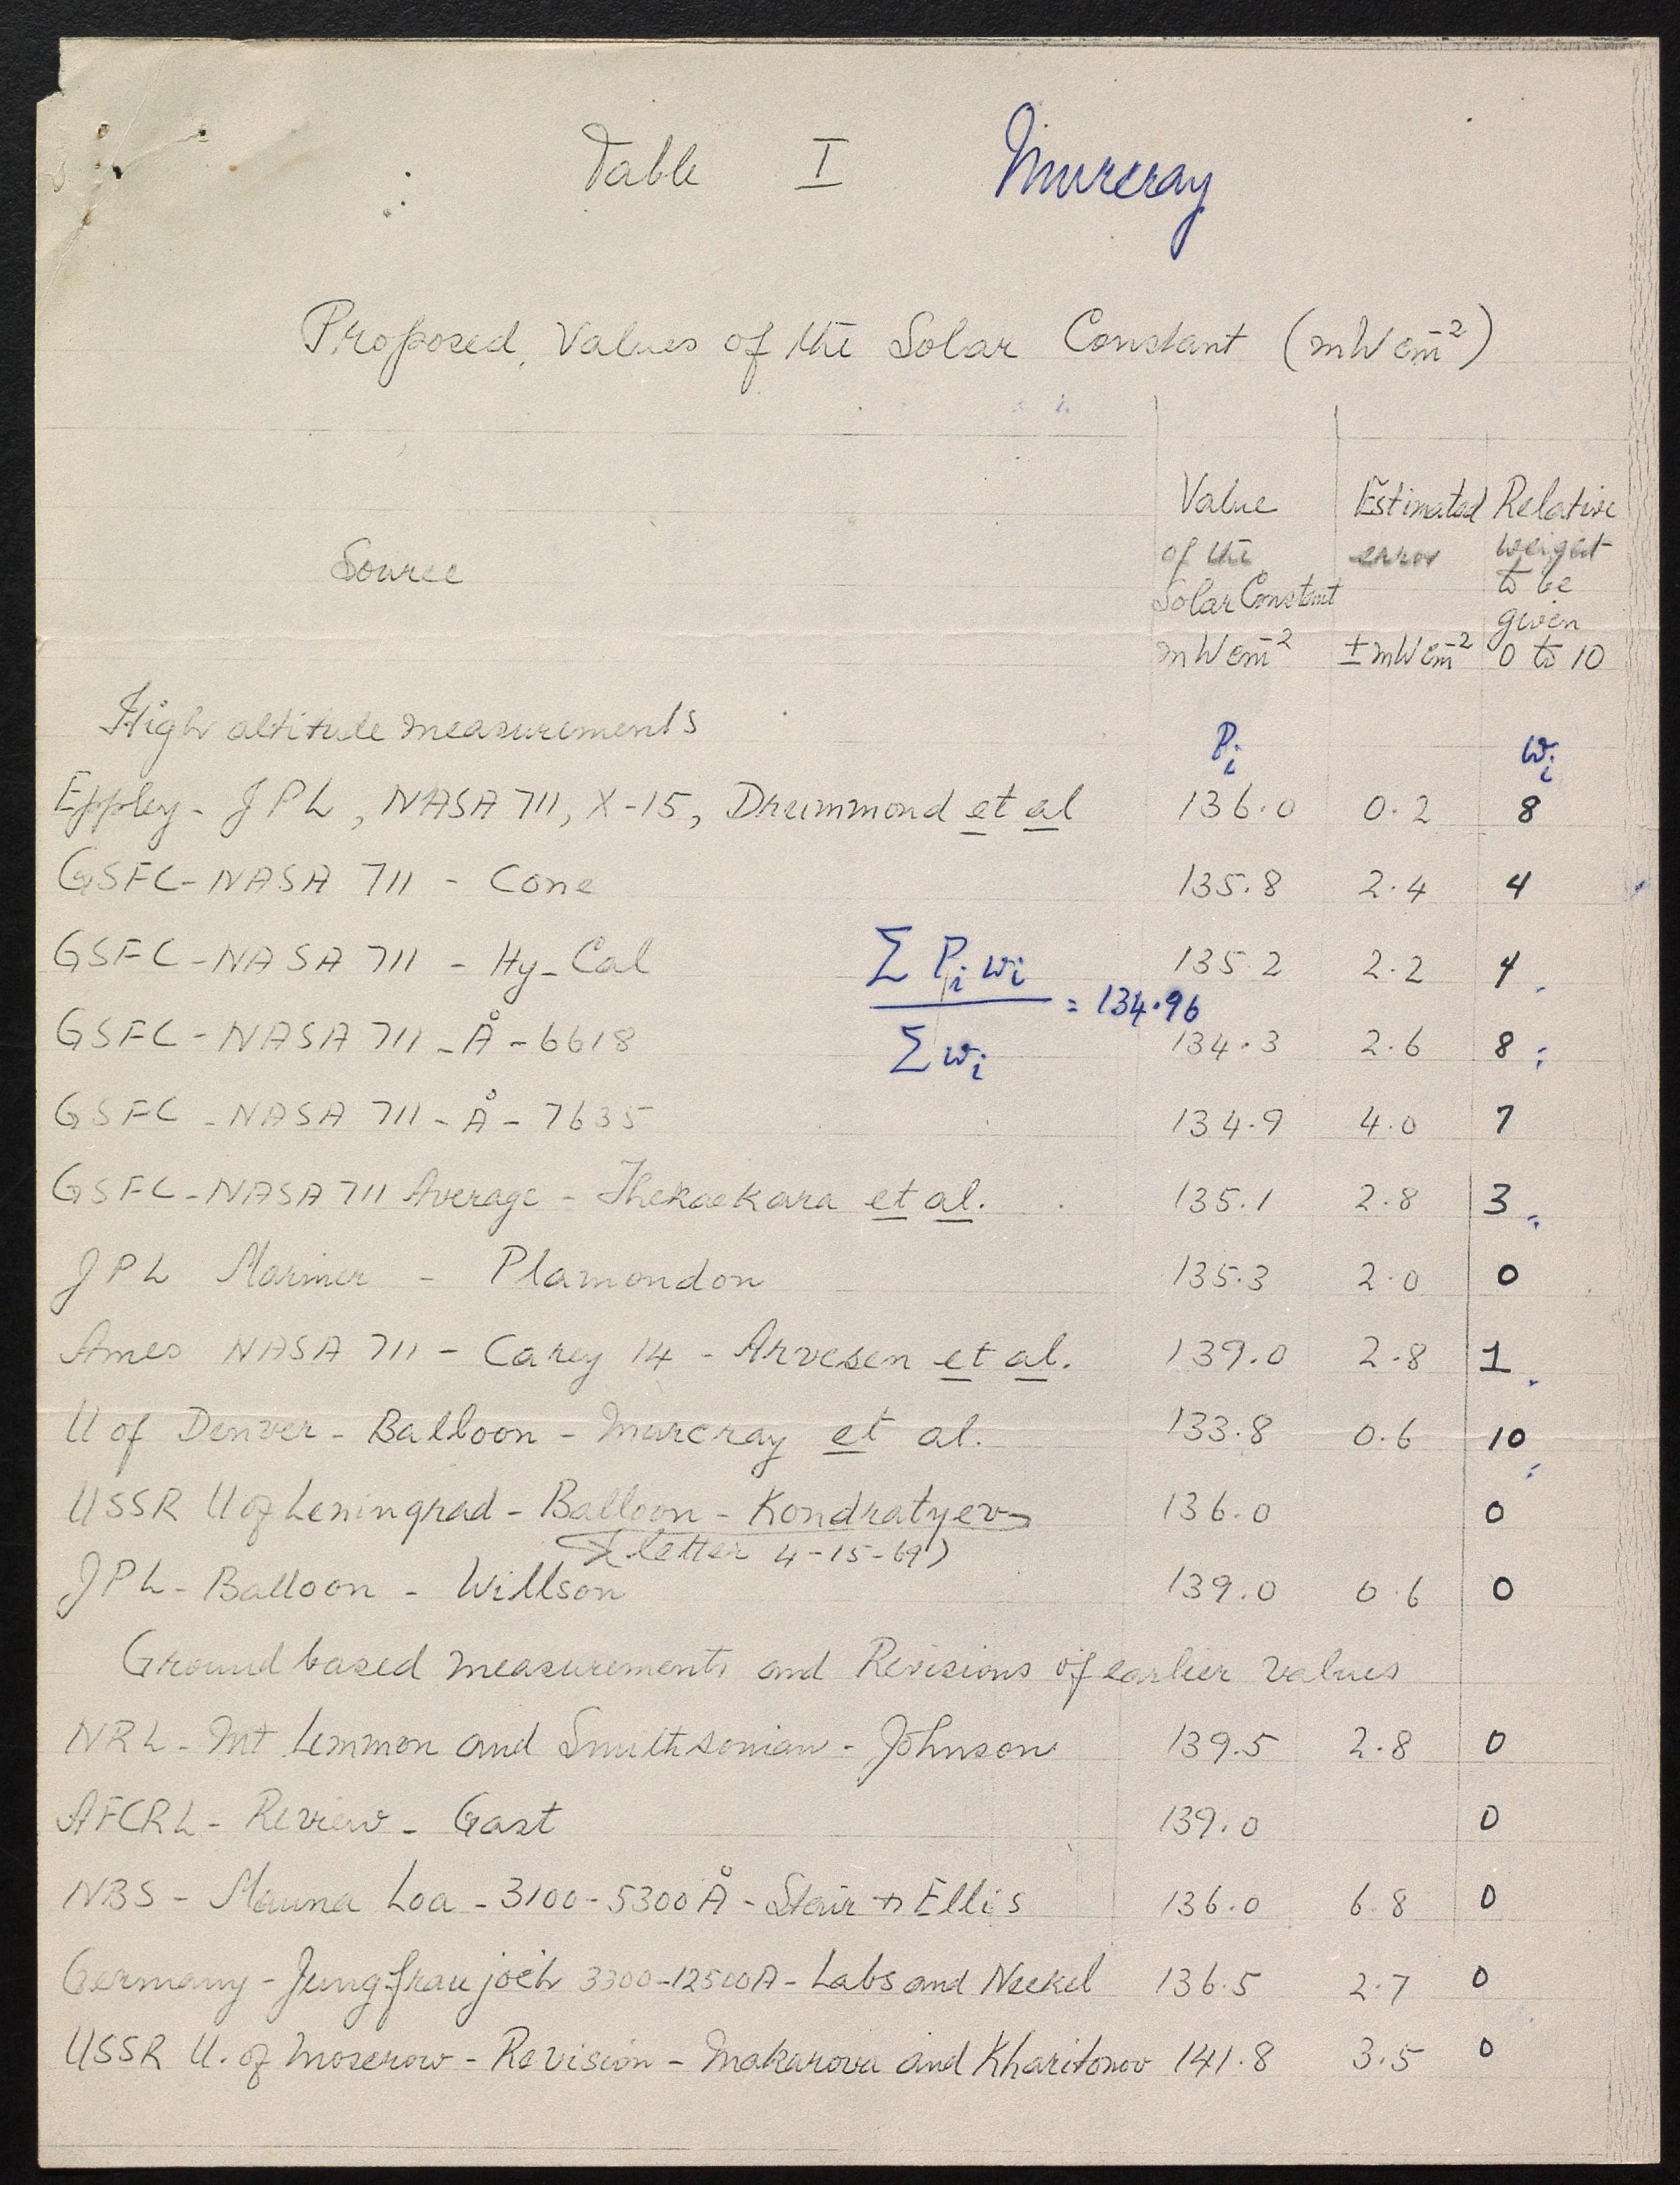 Table I Murcray
Proposed Values of the Solar Constant (mW cm⁻²)
Source
Value of the Solar Constant mW cm⁻²
Estimated error ± mW cm⁻²
Relative weight to be given 0 to 10
High altitude measurements Pᵢ wᵢ
Eppley - JPL, NASA 711, X-15, Drummond et al 136.0 0.2 8
GSFC-NASA 711 - Cone 135.8 2.4 4
GSFC-NASA 711 - Hy-Cal 135.2 2.2 4
Σ Pᵢ wᵢ / Σ wᵢ = 134.96
GSFC-NASA 711-Å-6618 134.3 2.6 8
GSFC-NASA 711-Å-7635 134.9 4.0 7
GSFC-NASA 711 Average - Thekaekara et al. 135.1 2.8 3
JPL Mariner - Plamondon 135.3 2.0 0
Ames NASA 711 - Carey 14 - Arvesen et al. 139.0 2.8 1
U of Denver - Balloon - Murcray et al. 133.8 0.6 10
USSR U of Leningrad - Balloon - Kondratyev 136.0 0
(letter 4-15-69)
JPL - Balloon - Willson 139.0 0.6 0
Ground based measurements and Revisions of earlier values
NRL - Mt Lemmon and Smithsonian - Johnson 139.5 2.8 0
AFCRL - Review - Gast 139.0 0
NBS - Mauna Loa - 3100-5300 Å - Stair + Ellis 136.0 6.8 0
Germany - Jungfraujoch 3300-12500A - Labs and Neckel 136.5 2.7 0
USSR U. of Moscrow - Revision - Makarova and Kharitonov 141.8 3.5 0